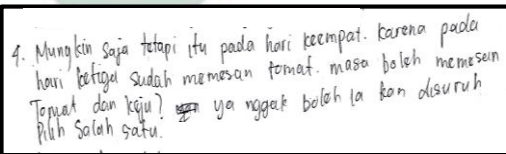 4. Mungkin saja tetapi itu pada hari keempat. karena pada
hari ketiga sudah memesan tomat. masa boleh memesan
Tomat dan keju? ya nggak boleh la kan disuruh
Pilih Salah satu.